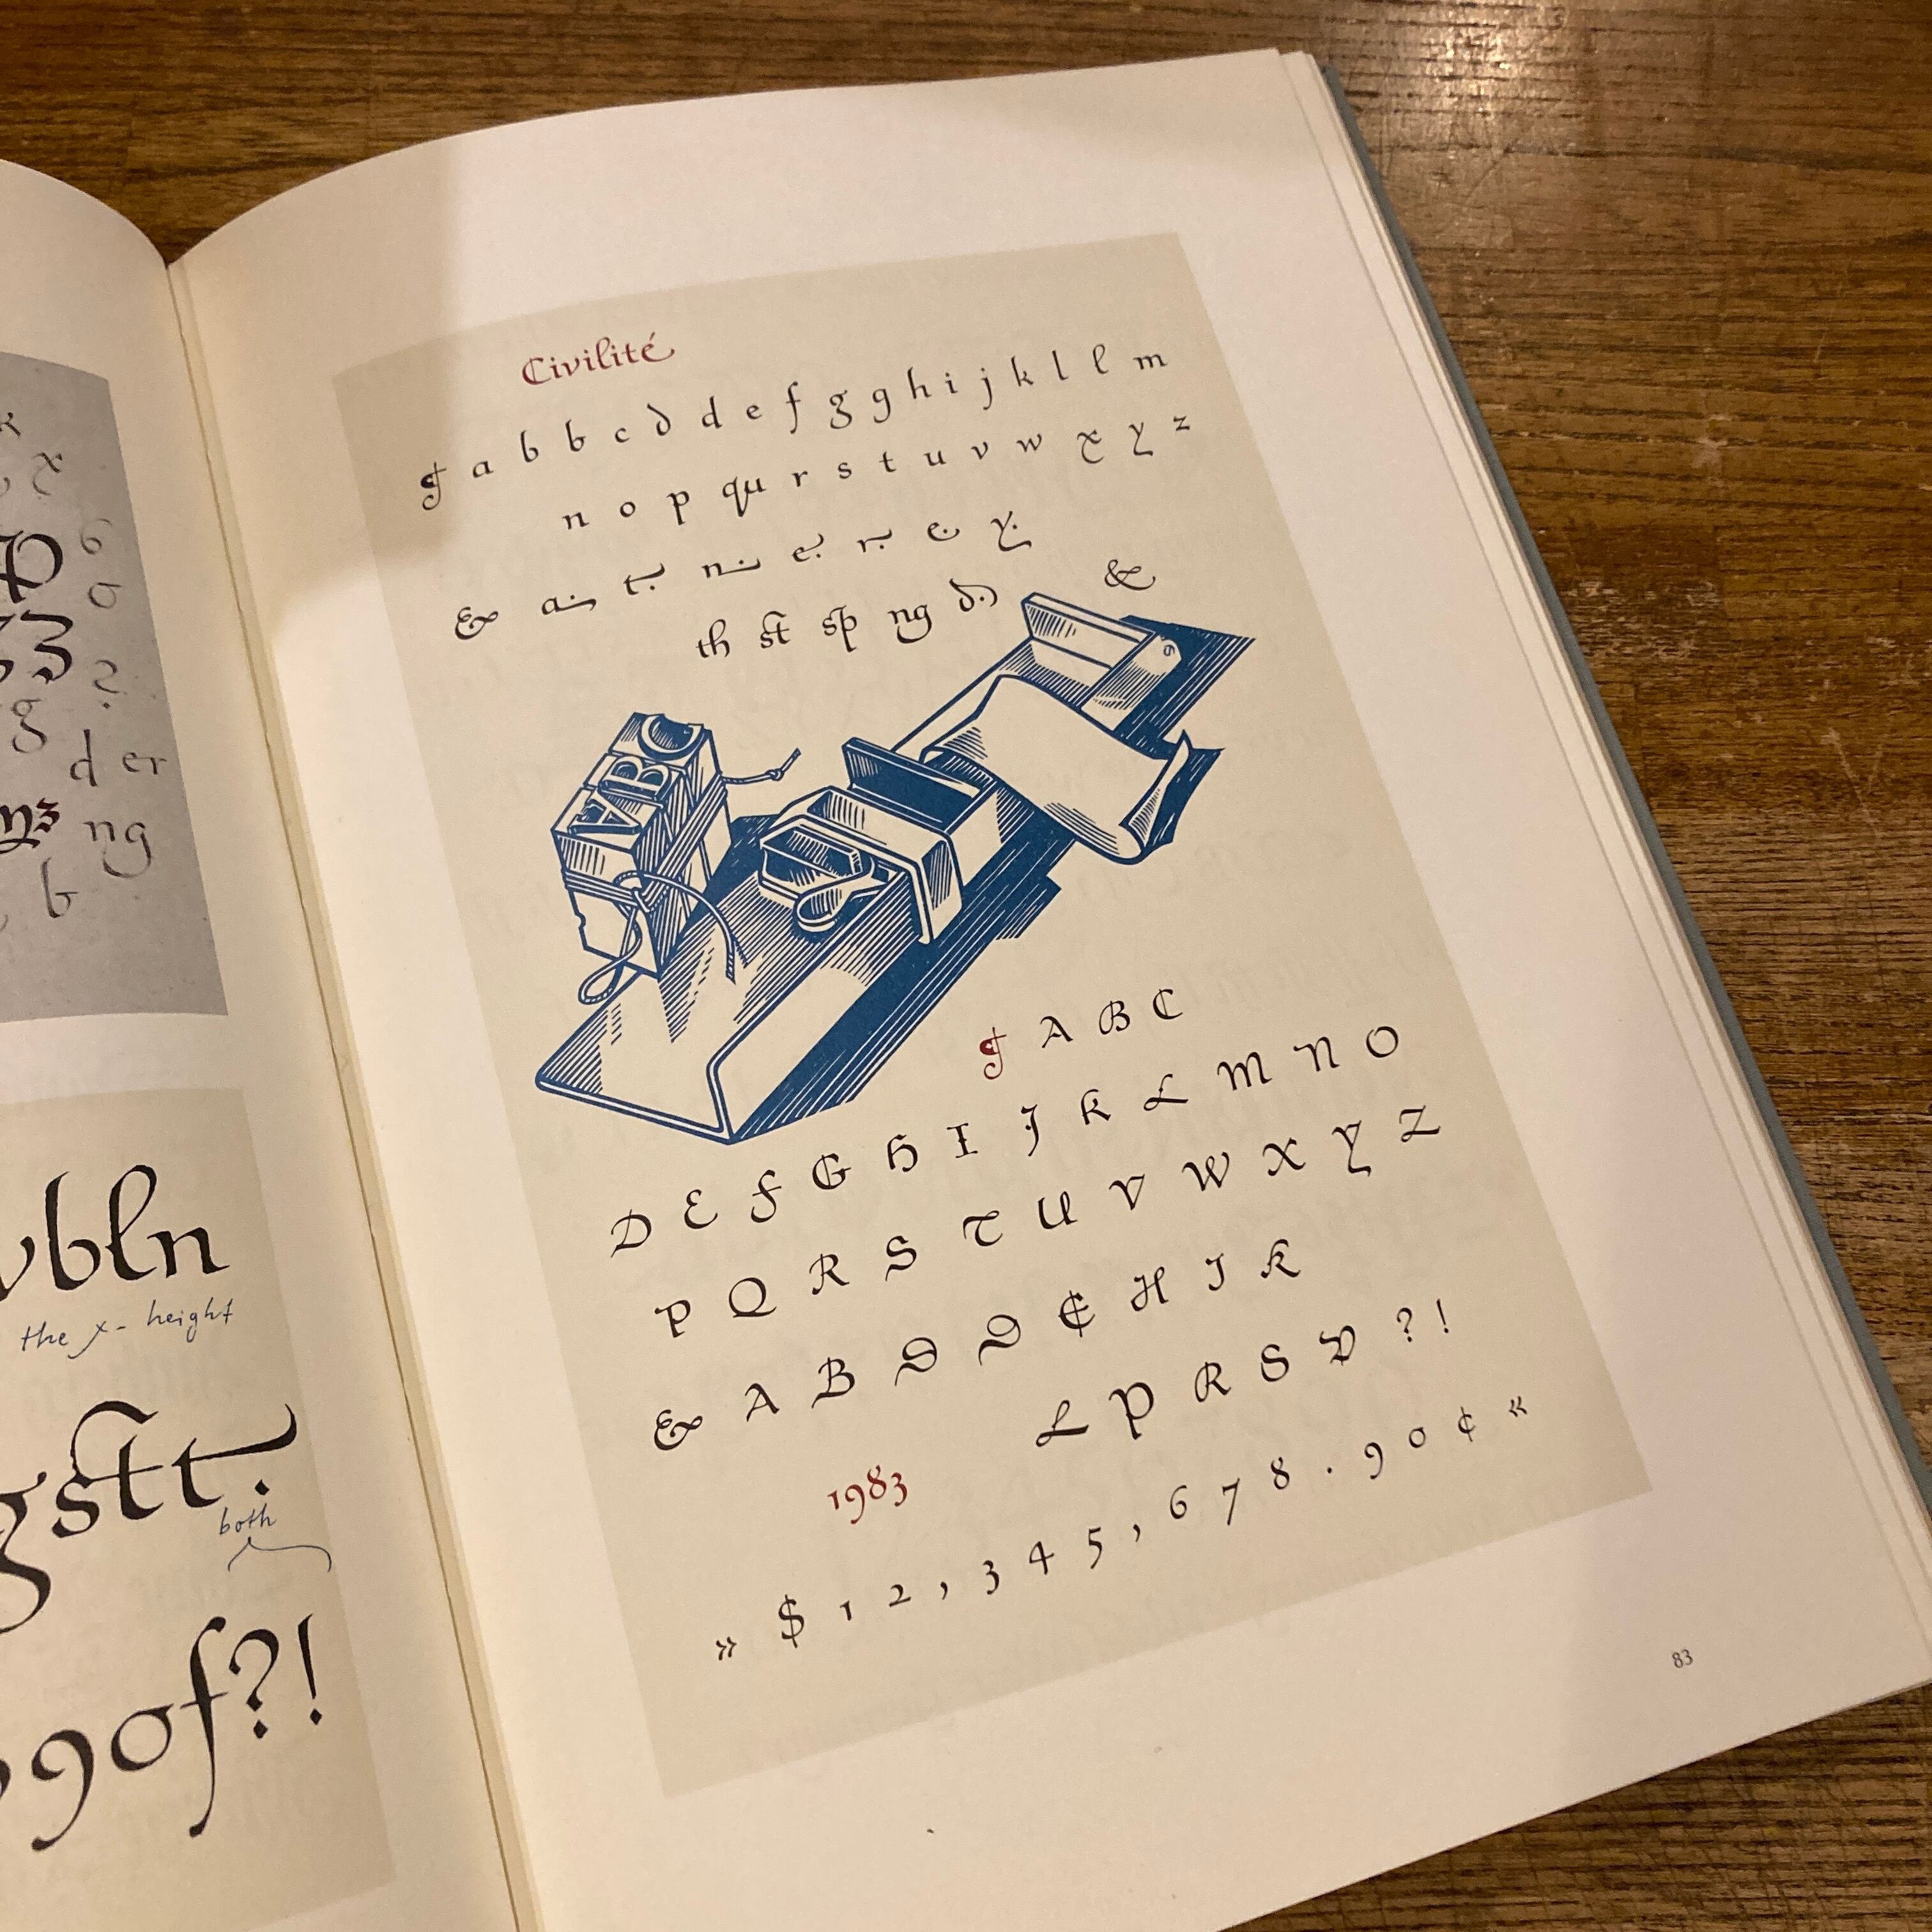 k
x
6
σ
?
g
d er
ng
b
vbln
the x-height
gstt.
both
9of?!
Civilité
¶ a b b c d d e f g g h i j k l l m
n o p qu r s t u v w x y z
& a. t. n. e. r. e. y.
th st sp ng d. &
ABC
6
¶ A B C
D E F G H I J K L M N O
P Q R S T U V W X Y Z
& A B D D E H I K
L P R S V ? !
1983
» $ 1 2 , 3 4 5 , 6 7 8 . 9 0 ¢ «
83